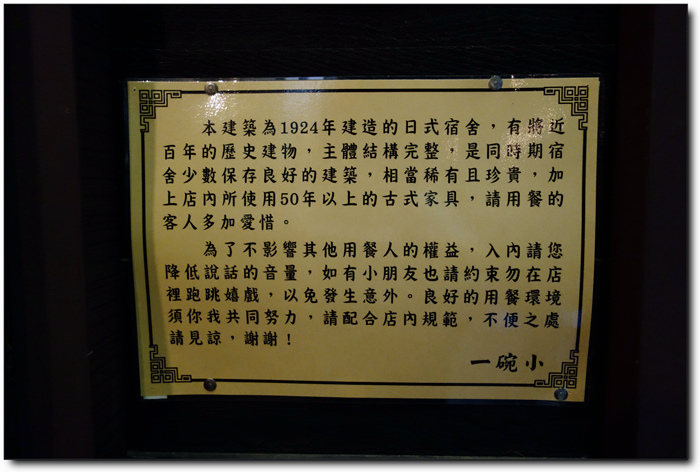 本建築為1924年建造的日式宿舍，有將近
百年的歷史建物，主體結構完整，是同時期宿
舍少數保存良好的建築，相當稀有且珍貴，加
上店內所使用50年以上的古式家具，請用餐的
客人多加愛惜。
為了不影響其他用餐人的權益，入內請您
降低說話的音量，如有小朋友也請約束勿在店
裡跑跳嬉戲，以免發生意外。良好的用餐環境
須你我共同努力，請配合店內規範，不便之處
請見諒，謝謝！
一碗小